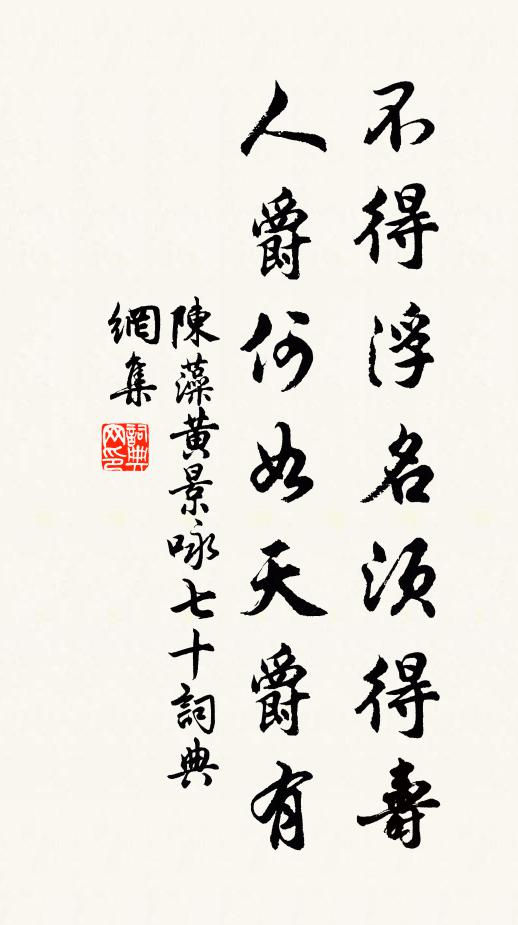 不得浮名須得壽
人爵何如天爵有
陳藻黃景咏七十詞典
網集
詞典
网印